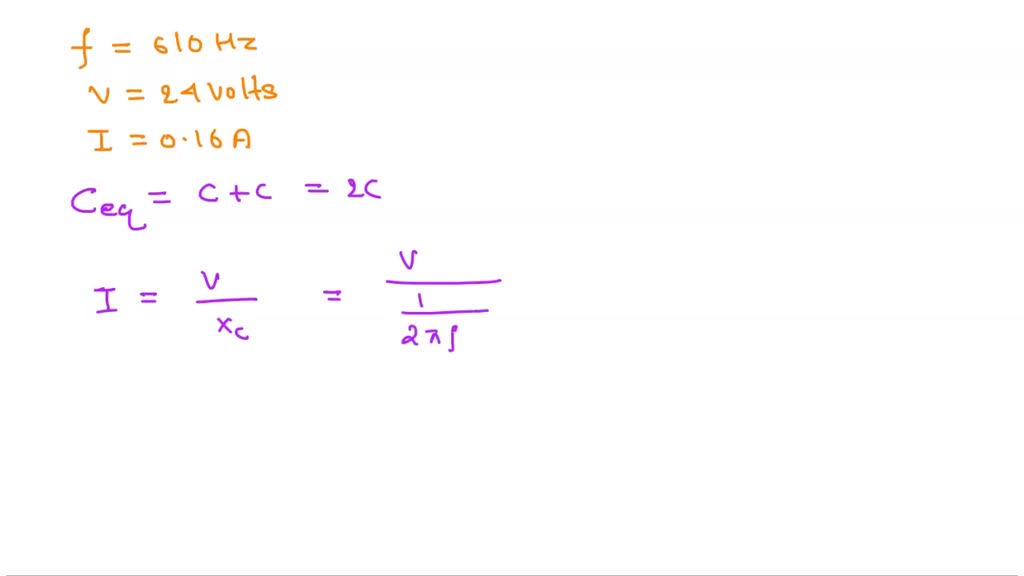 f = 610 Hz
V = 24 Volts
I = 0.16 A
Ceq = C + C = 2C
I = V / Xc = V / (1 / 2πf)